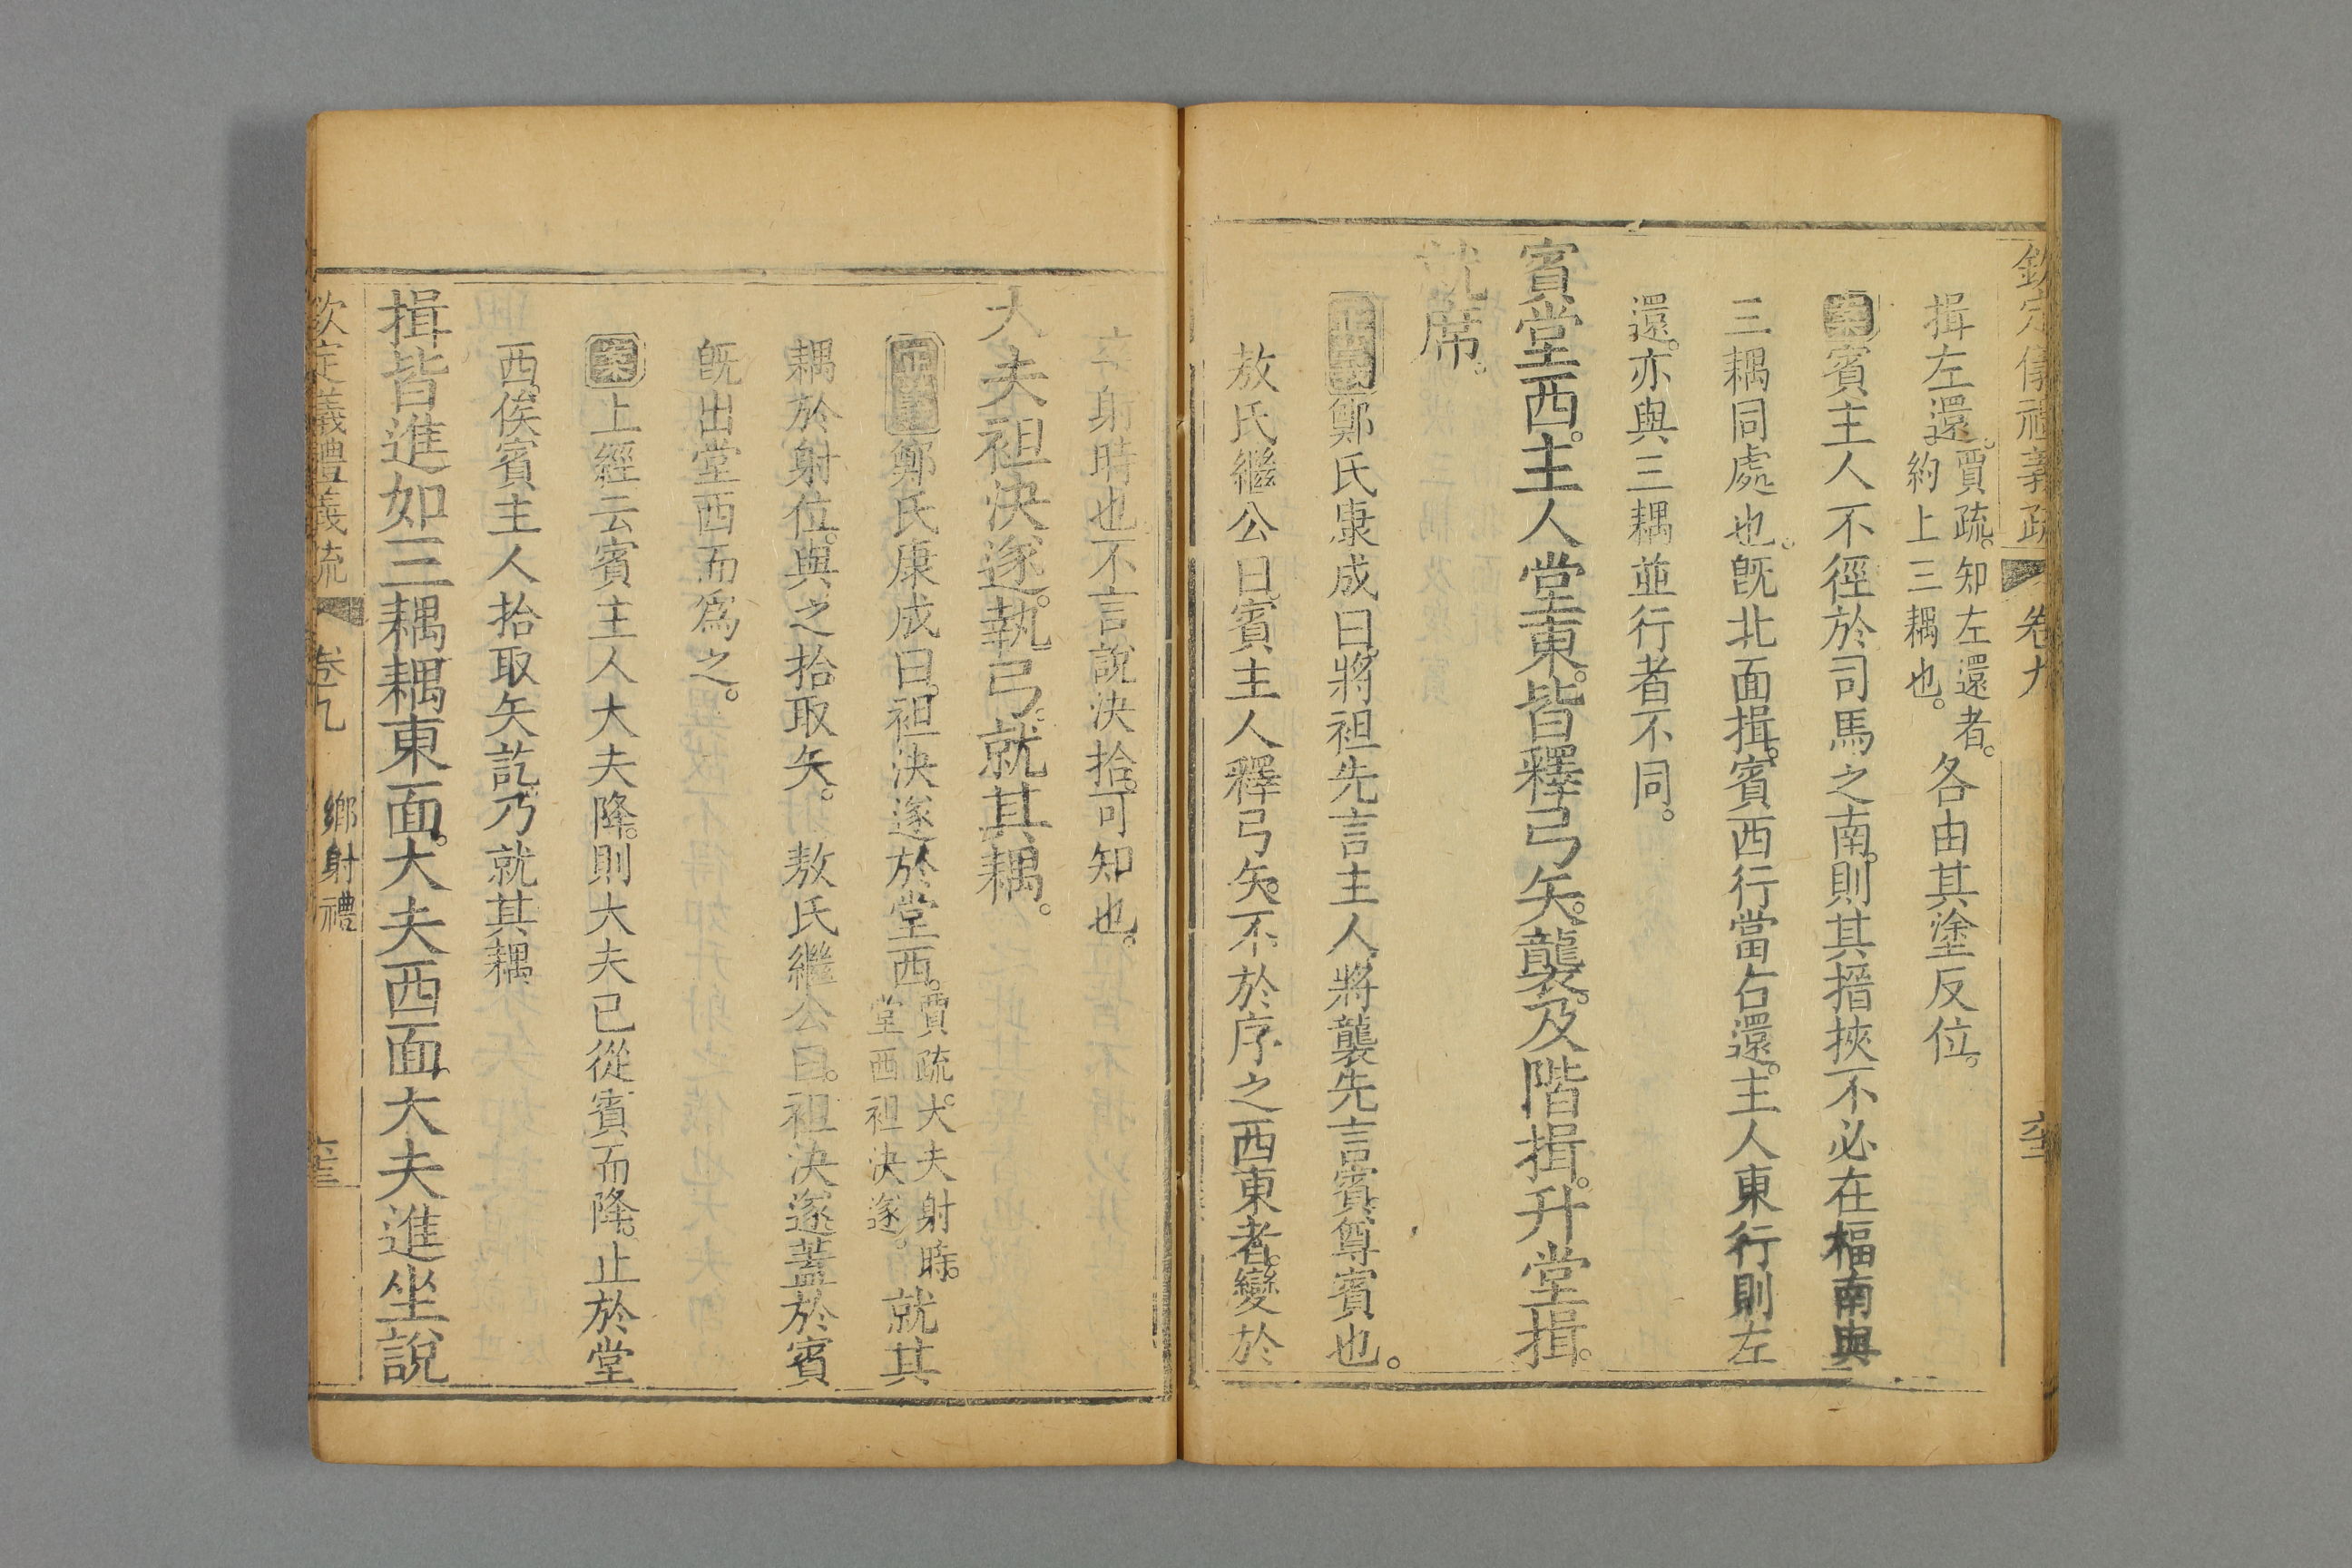 欽定儀禮義疏 卷九
揖左還。賈疏。知左還者。約上三耦也。各由其塗反位。
案賓主人不徑於司馬之南。則其搢挾不必在楅南與
三耦同處也。旣北面揖。賓西行當右還。主人東行則左
還。亦與三耦並行者不同。
賓堂西。主人堂東。皆釋弓矢。襲。及階揖。升堂揖。
就席。
正義鄭氏康成曰。將袒先言主人。將襲先言賓。尊賓也。
敖氏繼公曰。賓主人釋弓矢。不於序之西東者。變於
射時也。不言說決拾。可知也。
大夫袒決遂。執弓。就其耦。
正義鄭氏康成曰。袒決遂於堂西。賈疏。大夫射時。堂西袒決遂。就其
耦於射位。與之拾取矢。 敖氏繼公曰。袒決遂蓋於賓
旣出堂西而爲之。
案上經云賓主人大夫降。則大夫已從賓而降。止於堂
西。俟賓主人拾取矢訖。乃就其耦
揖皆進如三耦耦東面。大夫西面。大夫進坐說
欽定儀禮義疏 卷九 鄕射禮